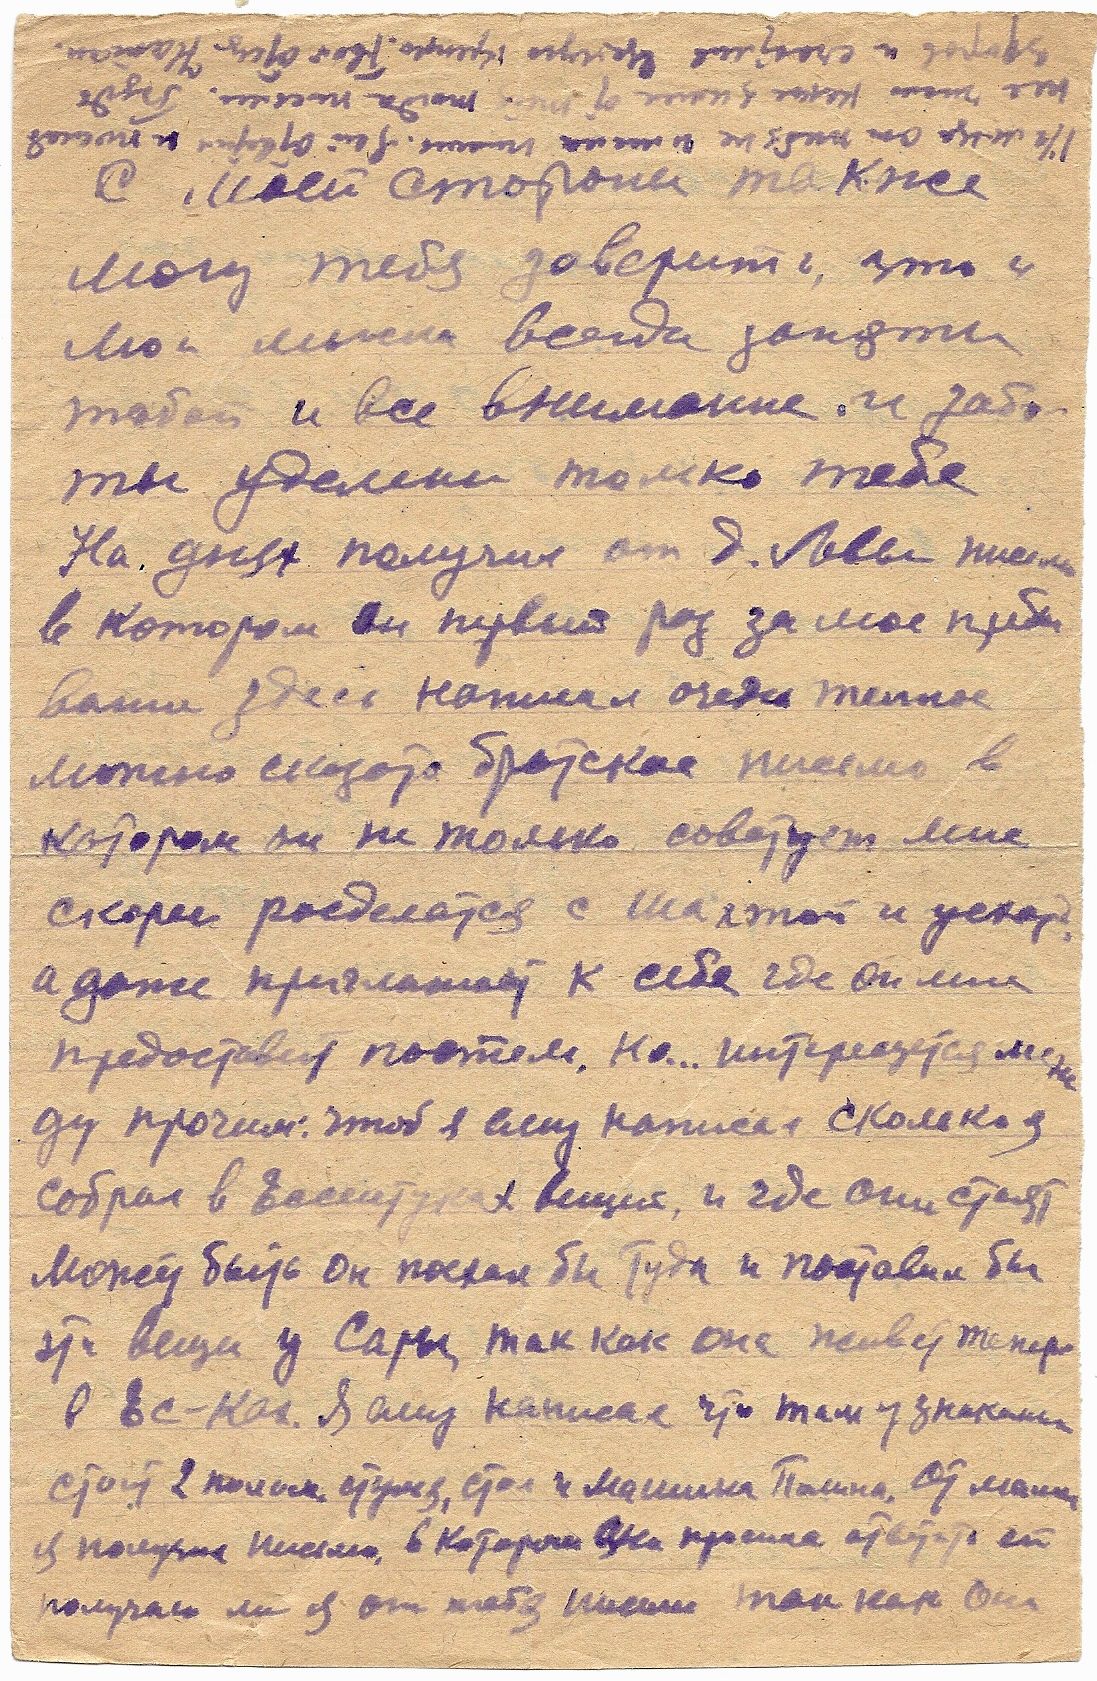 С моей стороны также
могу тебя заверить, что и
мои мысли всегда заняты
тобой и все внимание и забо-
ты уделены только тебе
На днях получил от д. Левы письмо
в котором он первый раз за мое пребы
вание здесь написал очень теплое
можно сказать братское письмо в
котором он не только советует мне
скорей расделатся с шахтой и
а даже приглашает к себе где он мне
предоставит постель, но... интересуется меж
ду прочим: чтоб я ему написал сколько я
собрал в Ессентуках вещей, и где они стоят
Может быть он поехал бы туда и поставил бы
эти вещи у Сары, так как она живет теперь
в Ес-ках. Я ему написал что там у знакомых
стоят 2 стуля, стол и машина Полина. От мамы
я получил письмо, в котором она просила ответить ей
получаю ли я от тебя письма так как она
1/2 м-ца от тебя не имела писем. Я ей ответил и послал
ей твои письма. Будь
здоров и счастлив Целую крепко. Твой отец Натан.